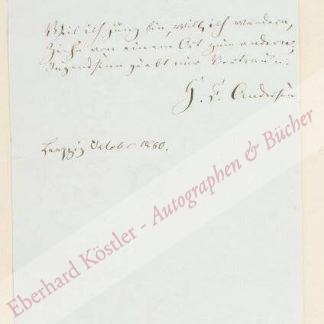 Weil ich jung bin, will ich wandern,
Ziehe von einem Ort zum andern,
Jugendsinn giebt mir Vertraun.
H. C. Andersen
Leipzig October 1860.
Eberhard Köstler - Autographen & Bücher